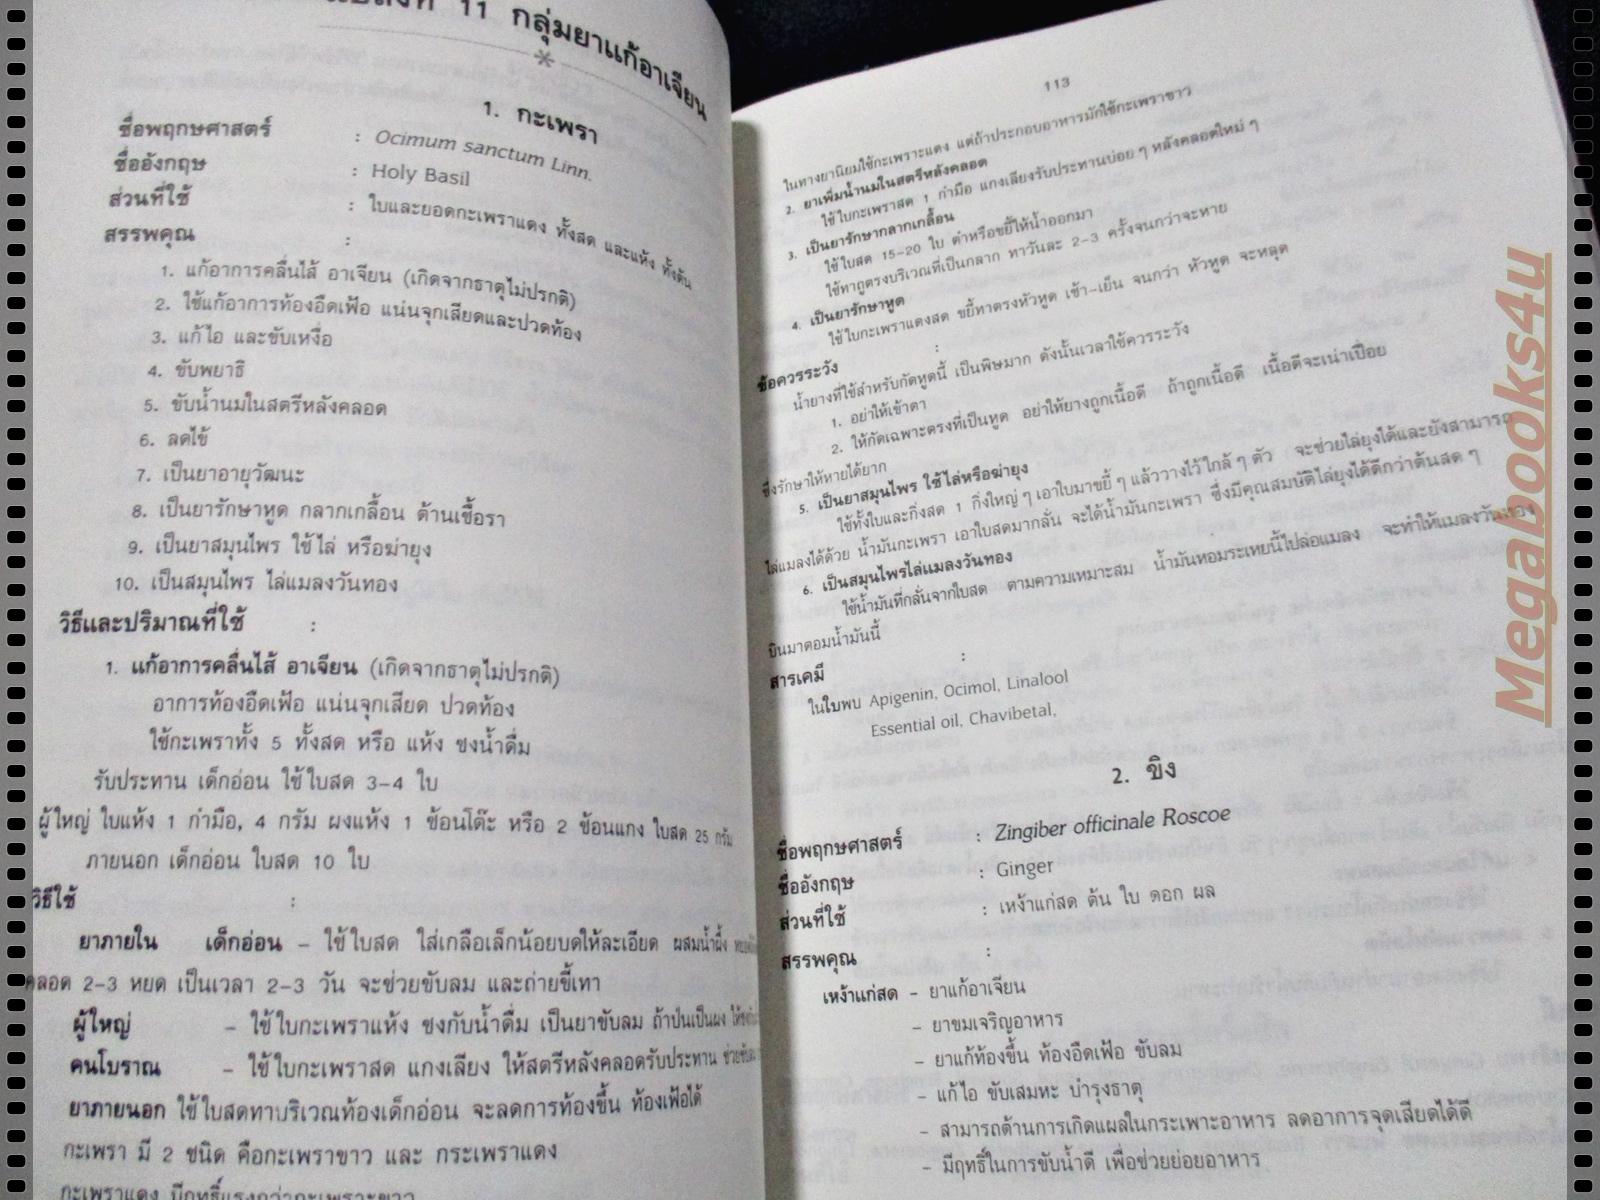 11 กลุ่มยาแก้อาเจียน
1. กะเพรา
ชื่อพฤกษศาสตร์ : Ocimum sanctum Linn.
ชื่ออังกฤษ : Holy Basil
ส่วนที่ใช้ : ใบและยอดกะเพราแดง ทั้งสด และแห้ง ทั้งต้น
สรรพคุณ :
1. แก้อาการคลื่นไส้ อาเจียน (เกิดจากธาตุไม่ปรกติ)
2. ใช้แก้อาการท้องอืดเฟ้อ แน่นจุกเสียดและปวดท้อง
3. แก้ไอ และขับเหงื่อ
4. ขับพยาธิ
5. ขับน้ำนมในสตรีหลังคลอด
6. ลดไข้
7. เป็นยาอายุวัฒนะ
8. เป็นยารักษาหูด กลากเกลื้อน ต้านเชื้อรา
9. เป็นยาสมุนไพร ใช้ไล่ หรือฆ่ายุง
10. เป็นสมุนไพร ไล่แมลงวันทอง
วิธีและปริมาณที่ใช้ :
1. แก้อาการคลื่นไส้ อาเจียน (เกิดจากธาตุไม่ปรกติ)
อาการท้องอืดเฟ้อ แน่นจุกเสียด ปวดท้อง
ใช้กะเพราทั้ง 5 ทั้งสด หรือ แห้ง ชงน้ำดื่ม
รับประทาน เด็กอ่อน ใช้ใบสด 3-4 ใบ
ผู้ใหญ่ ใบแห้ง 1 กำมือ, 4 กรัม ผงแห้ง 1 ช้อนโต๊ะ หรือ 2 ช้อนแกง ใบสด 25 กรัม
ภายนอก เด็กอ่อน ใบสด 10 ใบ
วิธีใช้ :
ยาภายใน เด็กอ่อน - ใช้ใบสด ใส่เกลือเล็กน้อยบดให้ละเอียด ผสมน้ำผึ้ง
คลอด 2-3 หยด เป็นเวลา 2-3 วัน จะช่วยขับลม และถ่ายขี้เทา
ผู้ใหญ่ - ใช้ใบกะเพราแห้ง ชงกับน้ำดื่ม เป็นยาขับลม ถ้าป่นเป็นผง
คนโบราณ - ใช้ใบกะเพราสด แกงเลียง ให้สตรีหลังคลอดรับประทาน
ยาภายนอก ใช้ใบสดทาบริเวณท้องเด็กอ่อน จะลดการท้องขึ้น ท้องเฟ้อได้
กะเพรา มี 2 ชนิด คือกะเพราขาว และ กระเพราแดง
กะเพราแดง มีฤทธิ์แรงกว่ากะเพราะขาว
113
ในทางยานิยมใช้กะเพราะแดง แต่ถ้าประกอบอาหารมักใช้กะเพราขาว
2. ยาเพิ่มน้ำนมในสตรีหลังคลอด
ใช้ใบกะเพราสด 1 กำมือ แกงเลียงรับประทานบ่อยๆ หลังคลอดใหม่ๆ
3. เป็นยารักษากลากเกลื้อน
ใช้ใบสด 15-20 ใบ ตำหรือขยี้ให้น้ำออกมา
ใช้ทาถูตรงบริเวณที่เป็นกลาก ทาวันละ 2-3 ครั้งจนกว่าจะหาย
4. เป็นยารักษาหูด
ใช้ใบกะเพราแดงสด ขยี้ทาตรงหัวหูด เช้า-เย็น จนกว่า หัวหูด จะหลุด
ข้อควรระวัง :
น้ำยางที่ใช้สำหรับกัดหูดนี้ เป็นพิษมาก ดังนั้นเวลาใช้ควรระวัง
1. อย่าให้เข้าตา
2. ให้กัดเฉพาะตรงที่เป็นหูด อย่าให้ยางถูกเนื้อดี ถ้าถูกเนื้อดี เนื้อดีจะเน่าเปื่อย
ซึ่งรักษาให้หายได้ยาก
5. เป็นยาสมุนไพร ใช้ไล่หรือฆ่ายุง
ใช้ทั้งใบและกิ่งสด 1 กิ่งใหญ่ๆ เอาใบมาขยี้ๆ แล้ววางไว้ใกล้ๆ ตัว จะช่วยไล่ยุงได้และยังสามารถ
ไล่แมลงได้ด้วย น้ำมันกะเพรา เอาใบสดมากลั่น จะได้น้ำมันกะเพรา ซึ่งมีคุณสมบัติไล่ยุงได้ดีกว่าต้นสดๆ
6. เป็นสมุนไพรไล่แมลงวันทอง
ใช้น้ำมันที่กลั่นจากใบสด ตามความเหมาะสม น้ำมันหอมระเหยนี้ไปล่อแมลง จะทำให้แมลงวันทอง
บินมาตอมน้ำมันนี้
สารเคมี :
ในใบพบ Apigenin, Ocimol, Linalool
Essential oil, Chavibetal,
2. ขิง
ชื่อพฤกษศาสตร์ : Zingiber officinale Roscoe
ชื่ออังกฤษ : Ginger
ส่วนที่ใช้ : เหง้าแก่สด ต้น ใบ ดอก ผล
สรรพคุณ :
เหง้าแก่สด - ยาแก้อาเจียน
- ยาขมเจริญอาหาร
- ยาแก้ท้องขึ้น ท้องอืดเฟ้อ ขับลม
- แก้ไอ ขับเสมหะ บำรุงธาตุ
- สามารถต้านการเกิดแผลในกระเพาะอาหาร ลดอาการจุดเสียดได้ดี
- มีฤทธิ์ในการขับน้ำดี เพื่อช่วยย่อยอาหาร
Megabooks4u